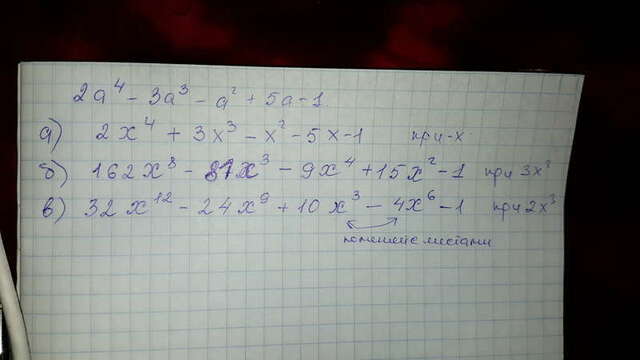 2a⁴ - 3a³ - a² + 5a - 1
а) 2x⁴ + 3x³ - x² - 5x - 1 при -x
б) 162x⁸ - 81x³ - 9x⁴ + 15x² - 1 при 3x²
в) 32x¹² - 24x⁹ + 10x³ - 4x⁶ - 1 при 2x³
поменяй местами